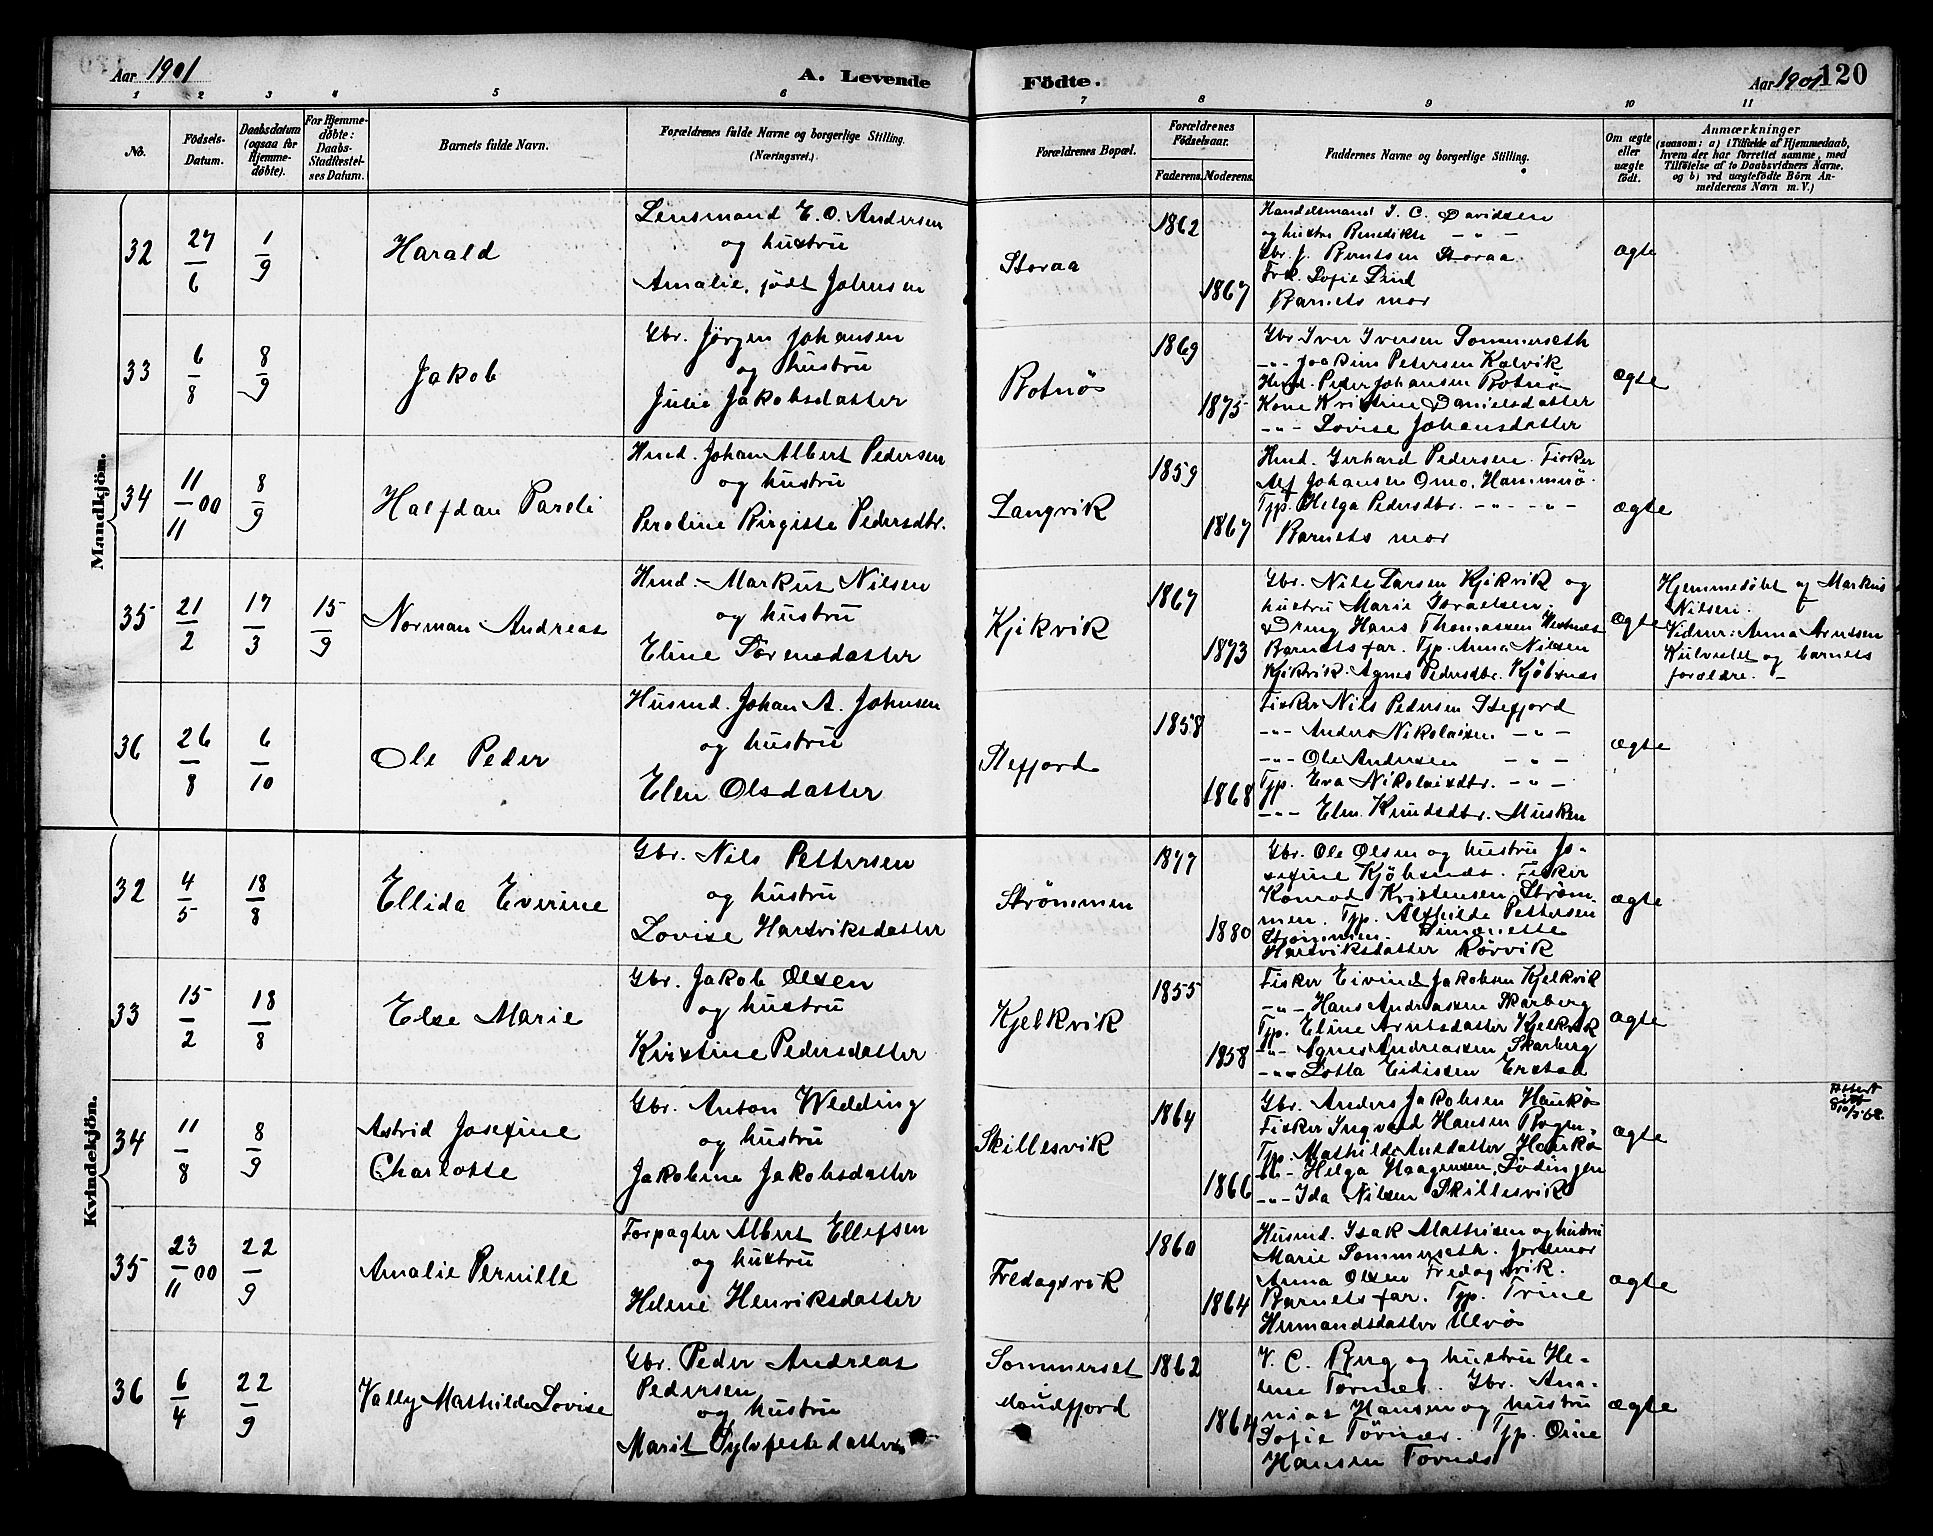 Aar 1901
A. Levende
Födte.
Aar 1901
120
1 2 3 4 5 6 7 8 9 10 11
No.
Födsels-
Datum.
Daabsdatum
(ogsaa for
Hjemme-
döbte).
For Hjemme-
döbte:
Daabs-
Stadfæstel-
ses Datum.
Barnets fulde Navn.
Forældrenes fulde Navne og borgerlige Stilling.
(Næringsvei.)
Forældrenes Bopæl.
Forældrenes
Födselsaar.
Faderens. Moderens.
Faddernes Navne og borgerlige Stilling.
Om ægte
eller
uægte
födt.
Anmærkninger
(saasom: a) i Tilfælde af Hjemmedaab,
hvem der har forrettet samme, med
Tilföielse af to Daabsvidners Navne,
og b) ved uægtefödte Börn An-
melderens Navn m. V.)
Mandkjön.
32
27/6
1/9
Harald
Lensmand E. O. Andersen
og hustru
Amalie, født Johnsen
Storaa
1862
1867
Handelsmand I. C. Davidsen
og hustru Benedikte - " -
Gbr. J. Berntsen Storaa
Frk. Sofie Lind
Barnets mor
ægte
33
6/8
8/9
Jakob
Gbr. Jörgen Johansen
og hustru
Julie Jakobsdatter
Botnös
1869
1875
Gbr Iver Iversen Sommerseth
-"- Joakim Petersen Kalvik
Hmd. Peder Johansen Botnö
Kone Kristine Danielsdatter
-"- Lovise Johansdatter
ægte
34
11/11 00
8/9
Halfdan Pareli
Hmd. Johan Albert Pedersen
og hustru
Peroline Birgitte Pedersdtr.
Langvik
1859
1867
Hmd. Gerhard Pedersen. Fisker
Alf Johansen Omo, Hammerö.
Tjp. Helga Pedersdtr. -"- -"-
Barnets mor
ægte
35
21/2
17/3
15/9
Norman Andreas
Hmd. Markus Nilsen
og hustru
Eline Sörensdatter
Kjikvik
1867
1873
Gbr. Nils Larsen Kjikvik og
hustru Marie Israelsen.
Dreng Hans Thomassen
Barnets far. Tjp. Anna Nilsen
Kjikvik. Agnes Pedersdtr. Kjöbsnes
ægte
Hjemmedøbt af Markus
Nilsen.
Vidner: Anna Arntsen
og barnets
forældre. -
36
26/8
6/10
Ole Peder
Husmd. Johan A. Johnsen
og hustru
Elen Olsdatter
Stefjord
1858
1868
Fisker Nils Pedersen Stefjord
-"- Anders Nikolaisen -"-
-"- Ole Andersen -"-
Tjp. Eva Nikolaisdtr. -"-
-"- Elen Knudsdtr. Musken
ægte
Kvindekjön.
32
4/5
18/8
Ellida Everine
Gbr. Nils Pettersen
og hustru
Lovise Hartviksdatter
Strømmen
1877
1880
Gbr. Ole Olsen og hustru Jo-
sefine Kjöbsnes. Fisker
Konrad Kristensen Strøm-
men. Tjp. Alfhilde Pettersen
Strømmen. Simonette
Hartviksdatter Rörvik
ægte
33
15/2
18/8
Else Marie
Gbr. Jakob Olsen
og hustru
Kirstine Pedersdatter
Kjelkvik
1855
1858
Fisker Eivind Jakobsen Kjelkvik
-"- Hans Andreassen Skarberg
Tjp. Eline Arntsdatter Kjelkvik
-"- Agnes Andreassen Skarberg
-"- Lotta Eidissen Erstad
ægte
34
11/8
8/9
Astrid Josefine
Charlotte
Gbr. Anton Wedding
og hustru
Jakobine Jakobsdatter
Skillesvik
1864
1866
Gbr. Anders Jakobsen Haukö
Fisker Ingvard Hansen Bogen.
Tjp. Mathilde Antsdatter Haukö
-"- Helga Haagensen, Lödingen
-"- Ida Nilsen Skillesvik
ægte
Attest
gitt
35
23/11 00
22/9
Amalie Pernille
Forpagter Albert Ellefsen
og hustru
Helene Henriksdatter
Fredagsvik
1860
1864
Husmd. Isak Mathisen og hustru
Marie Sommerseth. Jordmor
Anna Olsen Fredagsvik.
Barnets far. Tjp. Trine
Hermandsdatter Ulvös
ægte
36
6/4
22/9
Vally Mathilde Lovise
Gbr. Peder Andreas
Pedersen
og hustru
Marit Sylvestedatter
Sommerset
Maudfjord
1862
1864
V. C. Berg og hustru He-
lene Tornes. Gbr. Ana-
nias Hansen og hustru
Sofie Törnæs. Tjp. Orine
Hansen Tornæs
ægte